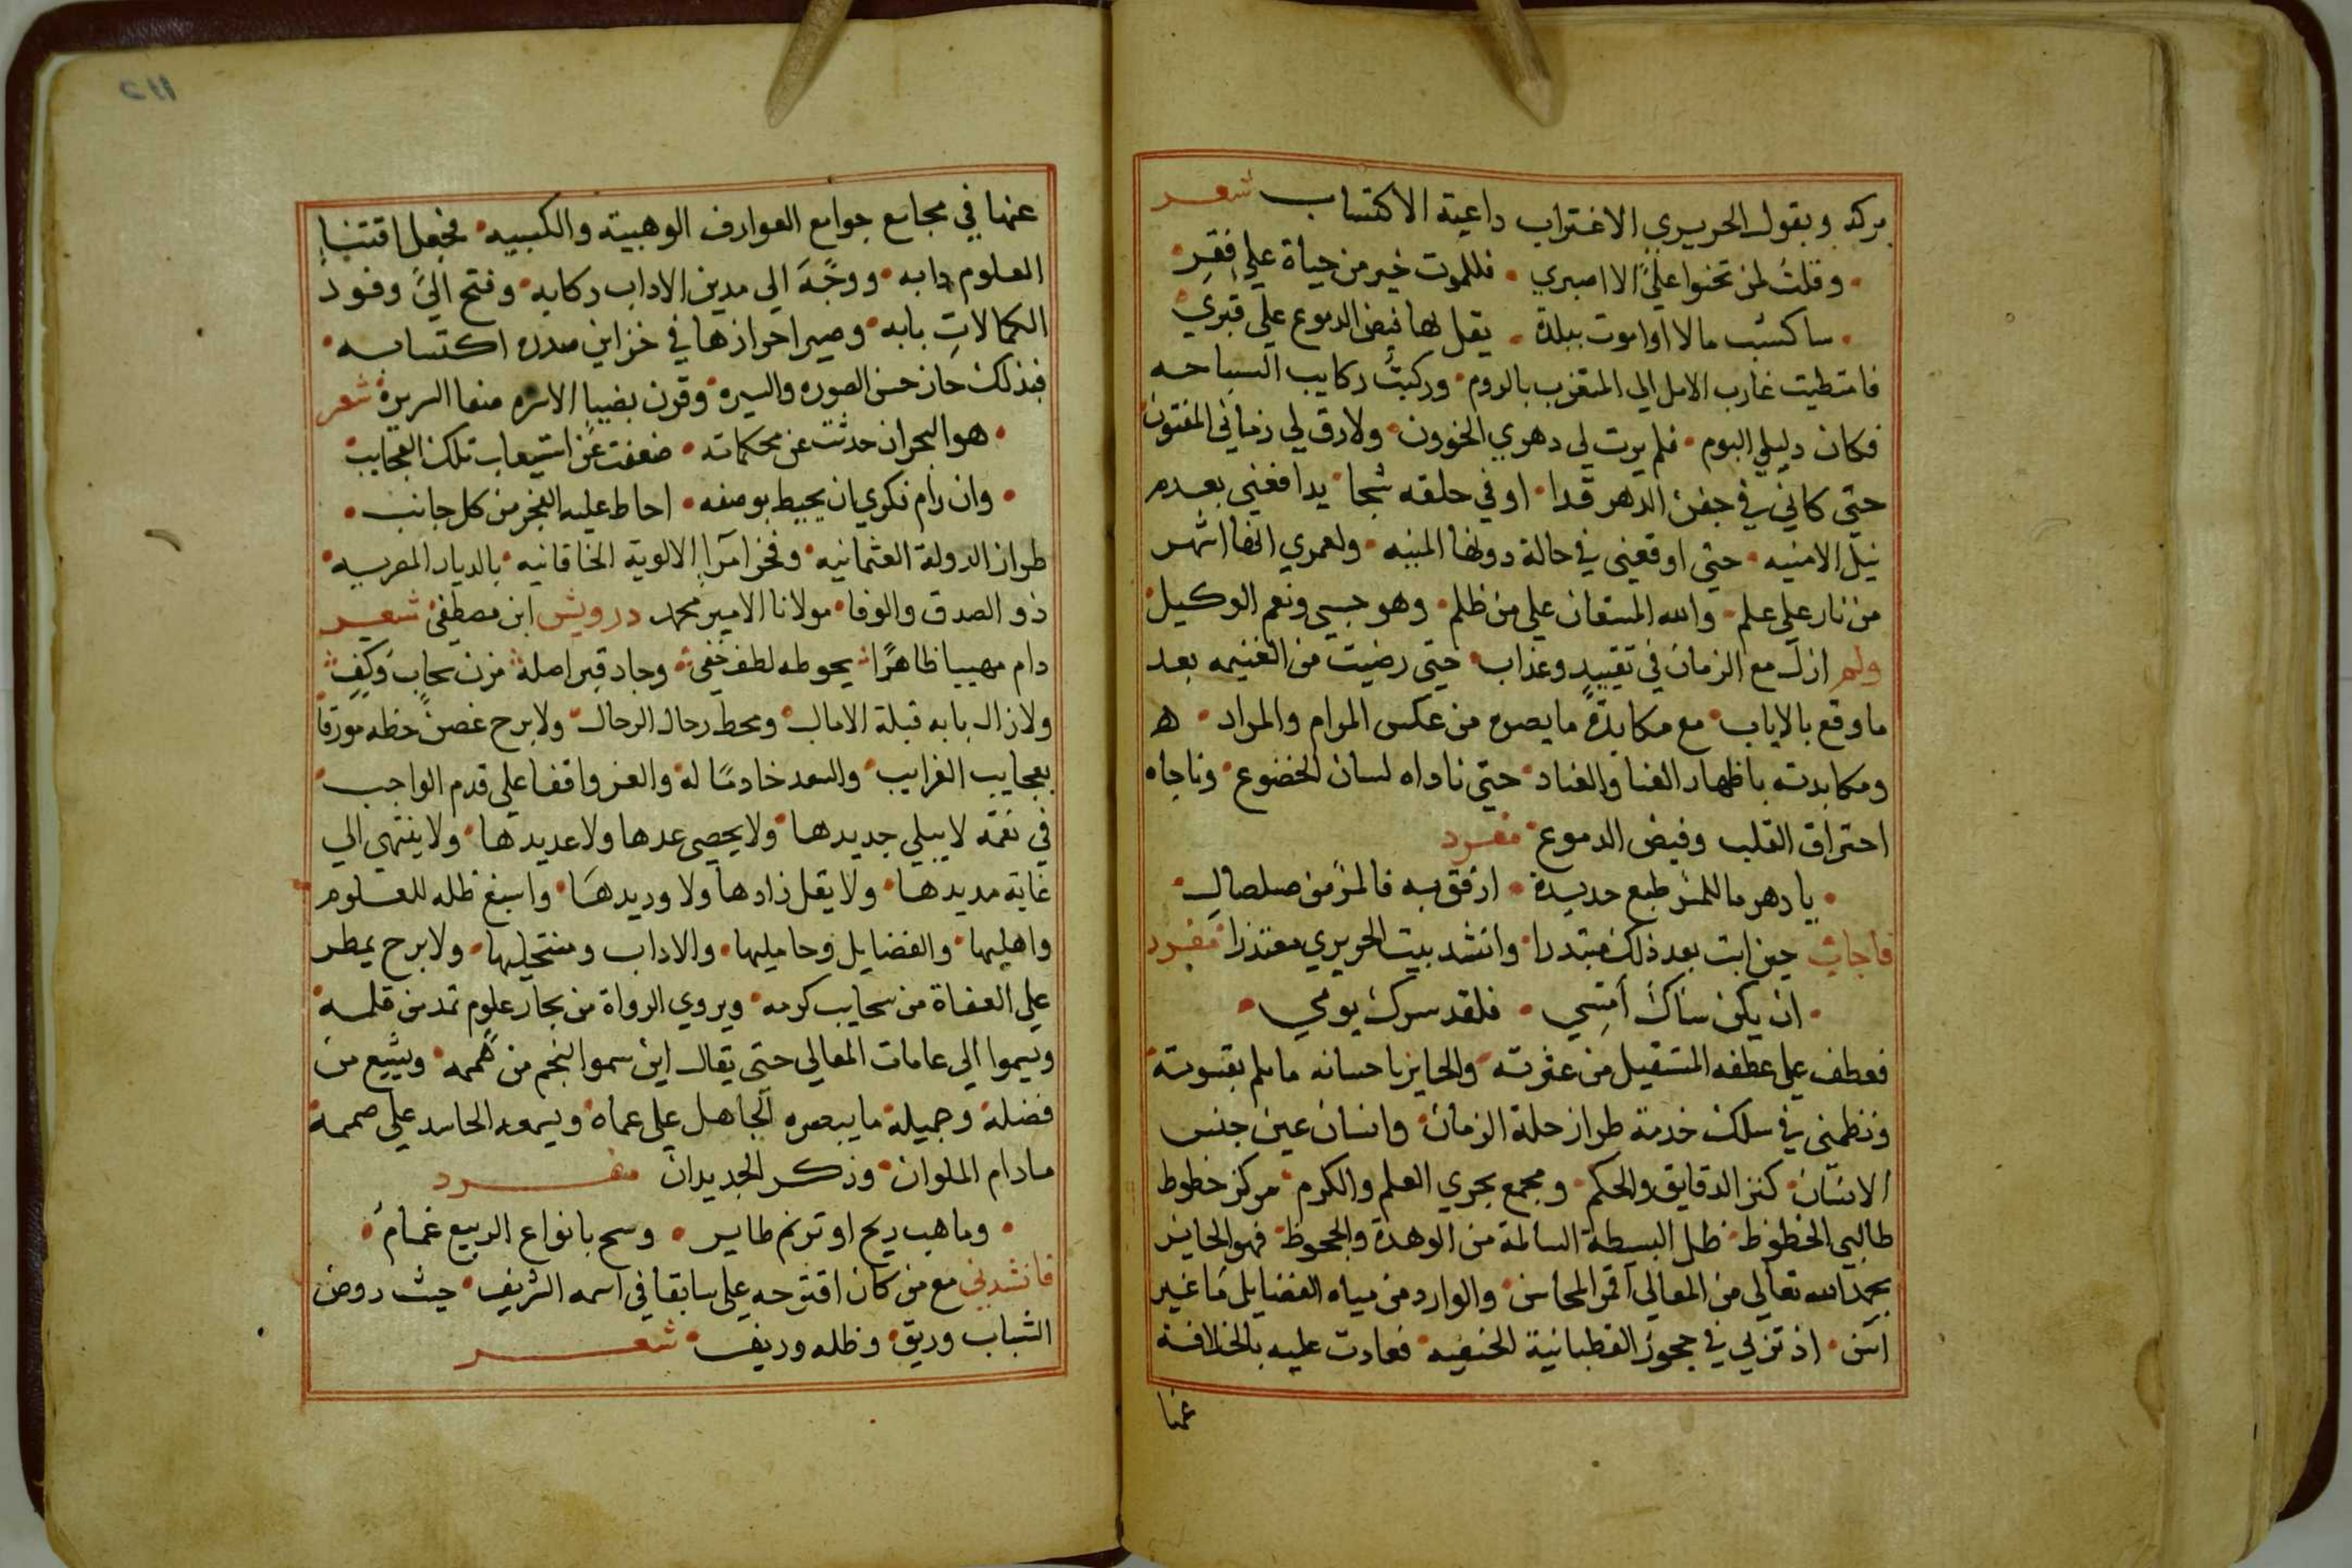 بركة وبقول الحريري الاغتراب داعية الاكتساب شعر
وقلت لمن تحنوا علي الا اصبري • فللموت خير من حياة علي فقر
ساكسب مالا او اموت ببلدة • يقل بها فيض الدموع علي قبري
فامتطيت غارب الامل الي المتقرب بالروم • وركبت ركايب السياحه
فكان دليلي البوم • فلم يرث لي دهري الخوون • ولا رق لي زماني المفتون
حتي كاني في جفن الدهر قذا • او في حلقه شجا • يدافعني بعدم
نيل الامنيه • حتي اوقعني في حالة دونها المنيه • ولعمري انها اشهر
من نار علي علم • والله المستعان علي من ظلم • وهو حسبي ونعم الوكيل
ولم ازل مع الزمان في تقييد وعذاب • حتي رضيت من الغنيمه بعد
ما وقع بالاياب • مع مكابدة ما يصره من عكس المرام والمراد • ه
ومكابدته باظهار العنا والعناد • حتي ناداه لسان الخضوع • وناجاه
احتراق القلب وفيض الدموع • مفرد
• يا دهر ما للمر طبع حديدة • ارفق به فالمر من صلصال •
فاجاب حين ابت بعد ذلك مبتدرا • وانشد بيت الحريري معتذرا • مفرد
• ان يكن ساك امسي • فلقد سرك يومي •
فعطف علي عطفه المستقيل من عثرته • والجايز باحسانه ما لم بقسوته
ونظمني في سلك خدمة طراز حلة الزمان • وانسان عين جنس
الانسان • كنز الدقايق والحكم • ومجمع بحري العلم والكرم • مركز خطوط
طالبي الحظوظ • ظل البسطة السالمة من الوهدة والجحوظ • فهو الحايز
بحمد الله تعالي من المعالي اقمر المحاسن • والوارد من مياه الفضايل ما غير
اسن • اذ تزلي في حجوز القطبانية الحنفيه • فعادت عليه بالخلافة
عنها
عنها في مجامع جوامع العوارف الوهبية والكسبيه • فجعل اقتنا
العلوم دابه • ووجه الي مدين الاداب ركابه • وفتح الي وفود
الكمالات بابه • وصير احرازها في خزاين صدره اكتسابه •
فبذلك حاز حسن الصوره والسيره • وقرن بضيا الاسره صفا السريرة • شعر
• هو البحر ان حدثت عن محكماته • ضعفت عن استيعاب تلك العجايب
• وان رام فكري ان يحيط بوصفه • احاط عليه العجز من كل جانب •
طراز الدولة العثمانيه • وفخر امرا الالوية الخاقانيه • بالديار المصريه •
ذو الصدق والوفا • مولانا الامير محمد درويش ابن مصطفي شعر
دام مهيبا ظاهرا • يحوطه لطف خفي • وجاد قبر اصله • مزن سحاب وكف
ولا زال بابه قبلة الامال • ومحط رحال الرجال • ولا برح غصن حظه مورقا
بعجايب الغرايب • والسعد خادما له • والعز واقفا علي قدم الواجب
في نعمة لا يبلي جديدها • ولا يحصي عدها ولا عديدها • ولا ينتهي الي
غاية مديدها • ولا يقل زادها ولا وريدها • واسبغ ظله للعلوم
واهليها • والفضايل وحامليها • والاداب ومنتحليها • ولا برح يمطر
علي العفاة من سحايب كرمه • ويروي الرواة من بحار علوم تمد من قلمه
ويسموا الي عامات المعالي حتي يقال اين سموا النجم من هممه • ويشيع من
فضله وجميله ما يبصره الجاهل علي عماه • ويسمعه الحاسد علي صممه
ما دام الملوان • وذكر الجديدان مفرد
• وما هب ريح او ترنم طاير • وسح بانواع الربيع غمام •
فانشدني مع من كان اقترحه علي سابقا في اسمه الشريف • حيث روض
الشباب وريق • وظله وريف • شعر